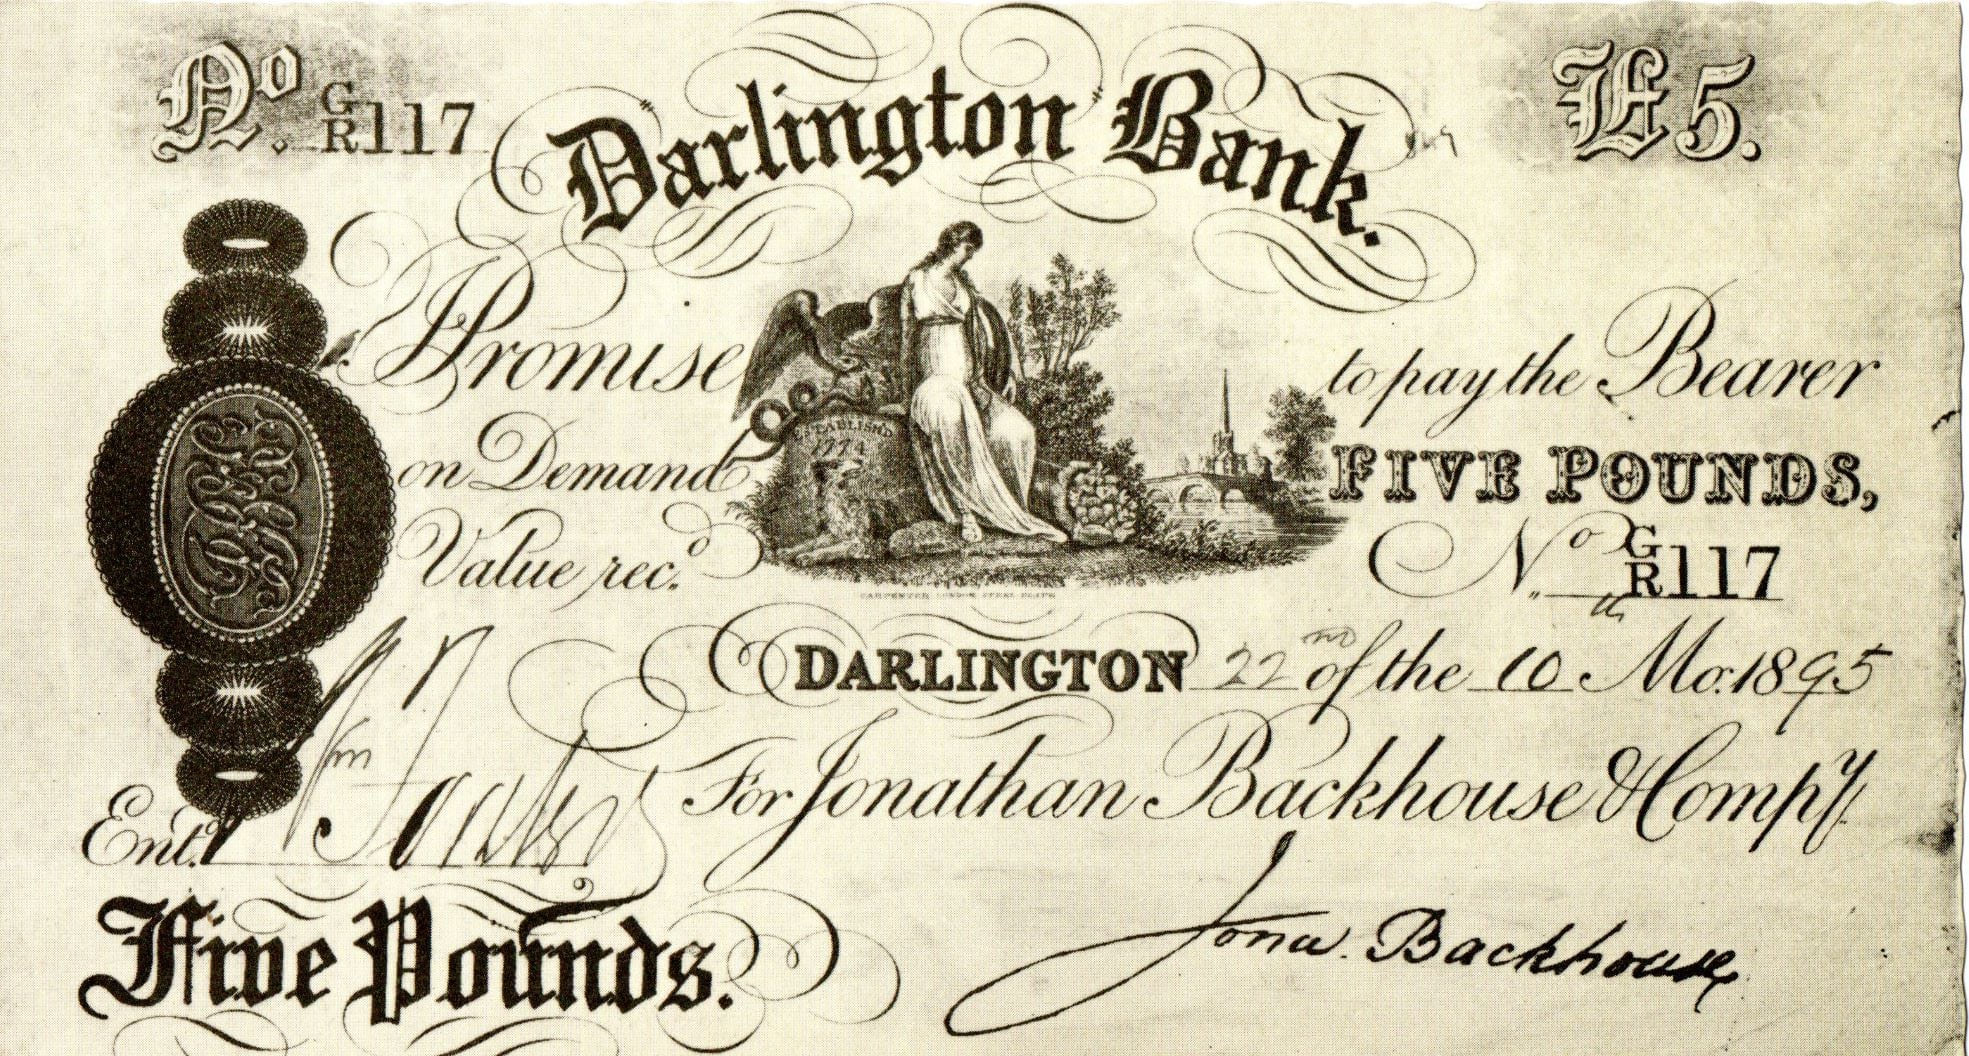 No. G/R 117
Darlington Bank.
£5.
I Promise to pay the Bearer
on Demand FIVE POUNDS,
ESTABLISHD
1774
Value rec.d No. G/R 117
CARPENTER LONDON STEEL PLATE
DARLINGTON 22nd of the 10th Mo. 1895
For Jonathan Backhouse & Compy
Ent.d Wm
Jona. Backhouse
Five Pounds.